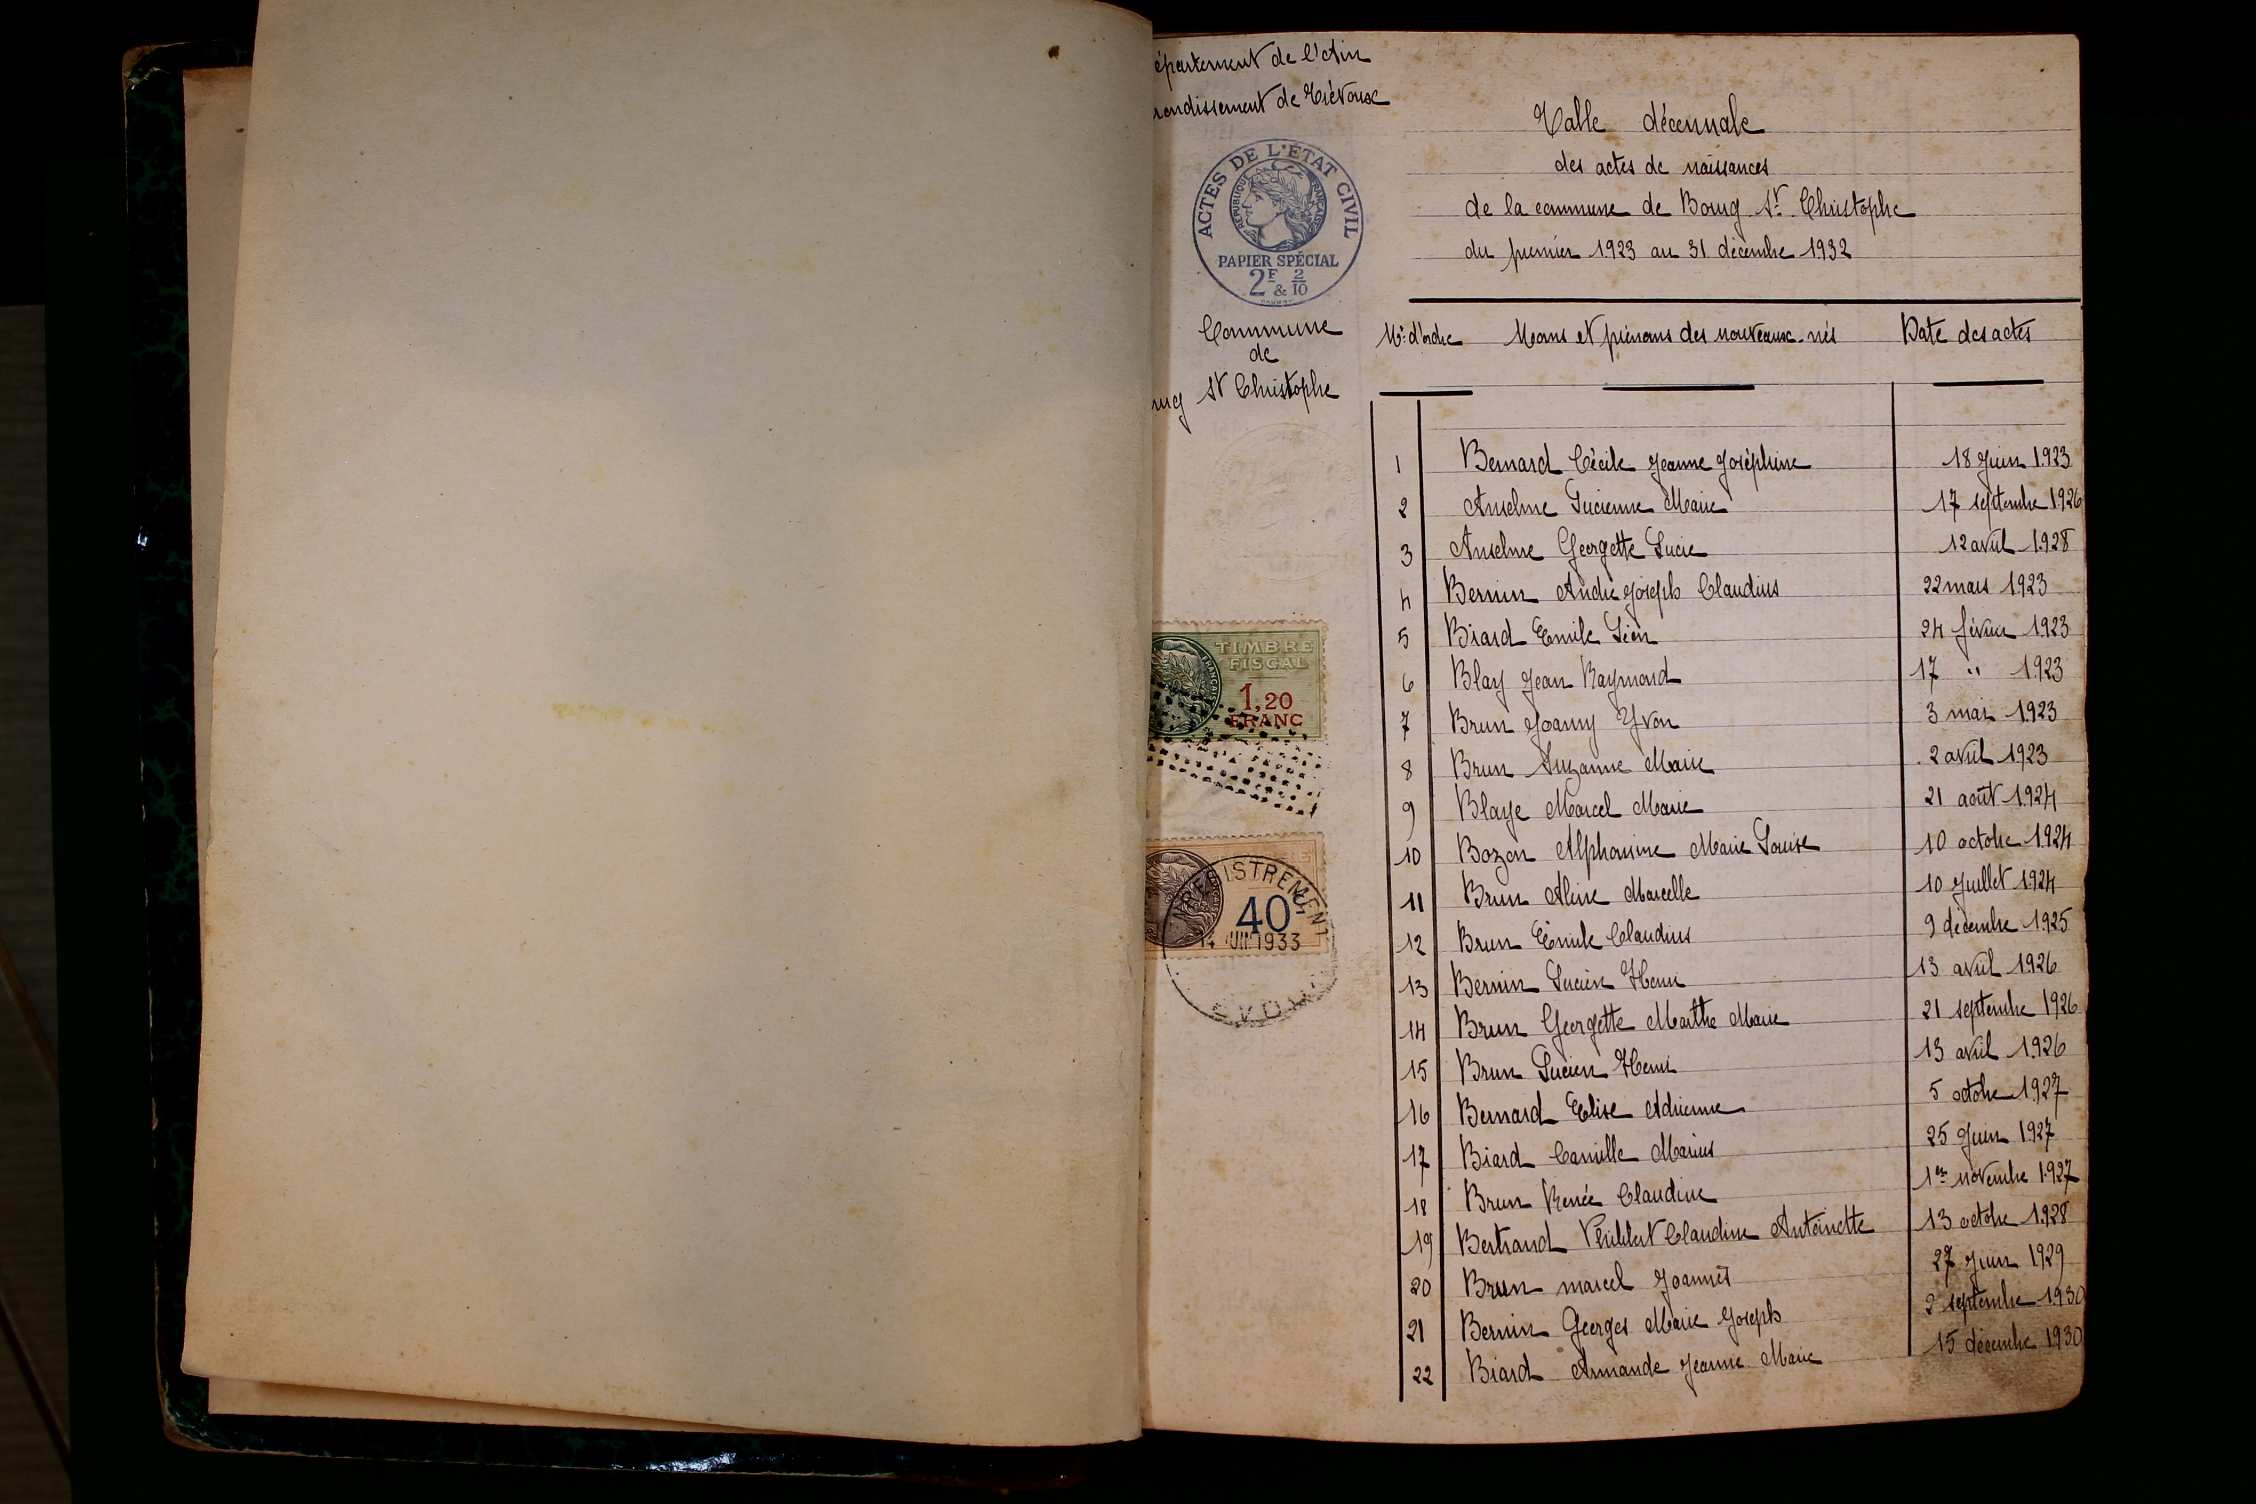 épartement de l'Ain
rondissement de Trévoux
ACTES DE L'ÉTAT CIVIL
RÉPUBLIQUE FRANÇAISE
PAPIER SPÉCIAL
2F & 2/10
Commune
de
urg St Christophe
TIMBRE
FISCAL
1,20
FRANC
ENREGISTREMENT
40c
14 JUIN 1933
Table décennale
des actes de naissances
de la commune de Bourg St Christophe
du premier 1923 au 31 décembre 1932
No d'ordre Noms et prénoms des nouveaux-nés Date des actes
1 Bernard Cécile Jeanne Joséphine 18 Juin 1923
2 Anselme Lucienne Marie 17 septembre 1926
3 Anselme Georgette Lucie 12 avril 1928
4 Bernin André Joseph Claudius 22 mars 1923
5 Biard Emile Léon 24 février 1923
6 Blay Jean Raymond 17 " 1923
7 Brun Joanny Yvon 3 mai 1923
8 Brun Suzanne Marie 2 avril 1923
9 Blaye Marcel Marie 21 août 1924
10 Bozon Alphonsine Marie Louise 10 octobre 1924
11 Brun Aline Marcelle 10 Juillet 1924
12 Brun Émile Claudius 9 décembre 1925
13 Bernin Lucien Henri 13 avril 1926
14 Brun Georgette Marthe Marie 21 septembre 1926
15 Brun Lucien Henri 13 avril 1926
16 Bernard Elise Adrienne 5 octobre 1927
17 Biard Camille Marius 25 Juin 1927
18 Brun Renée Claudine 1er novembre 1927
19 Bertrand Claudine Antoinette 13 octobre 1928
20 Brun marcel Joannès 27 Juin 1929
21 Bernin Georges Marie Joseph 2 septembre 1930
22 Biard Armande Jeanne Marie 15 décembre 1930